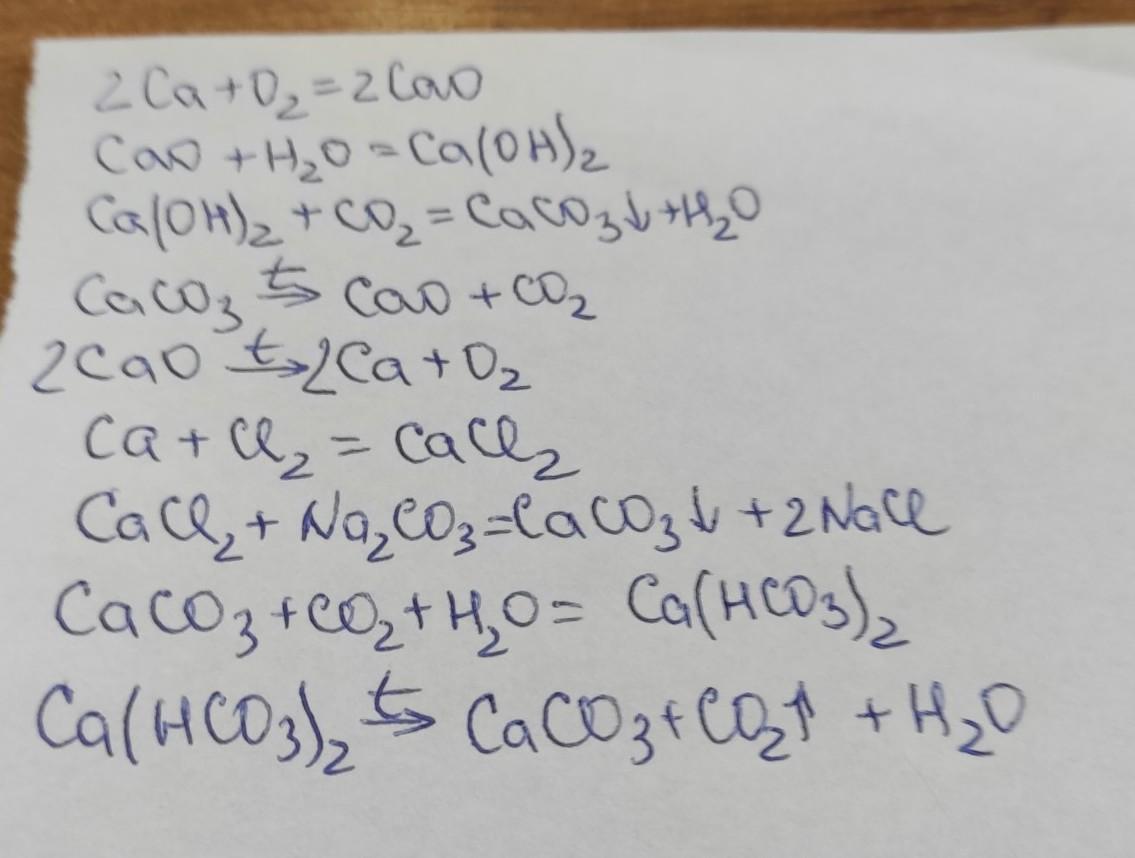 2Ca+O₂=2CaO
CaO+H₂O=Ca(OH)₂
Ca(OH)₂+CO₂=CaCO₃↓+H₂O
CaCO₃ t→ CaO+CO₂
2CaO t→ 2Ca+O₂
Ca+Cl₂=CaCl₂
CaCl₂+Na₂CO₃=CaCO₃↓+2NaCl
CaCO₃+CO₂+H₂O= Ca(HCO₃)₂
Ca(HCO₃)₂ t→ CaCO₃+CO₂↑ +H₂O